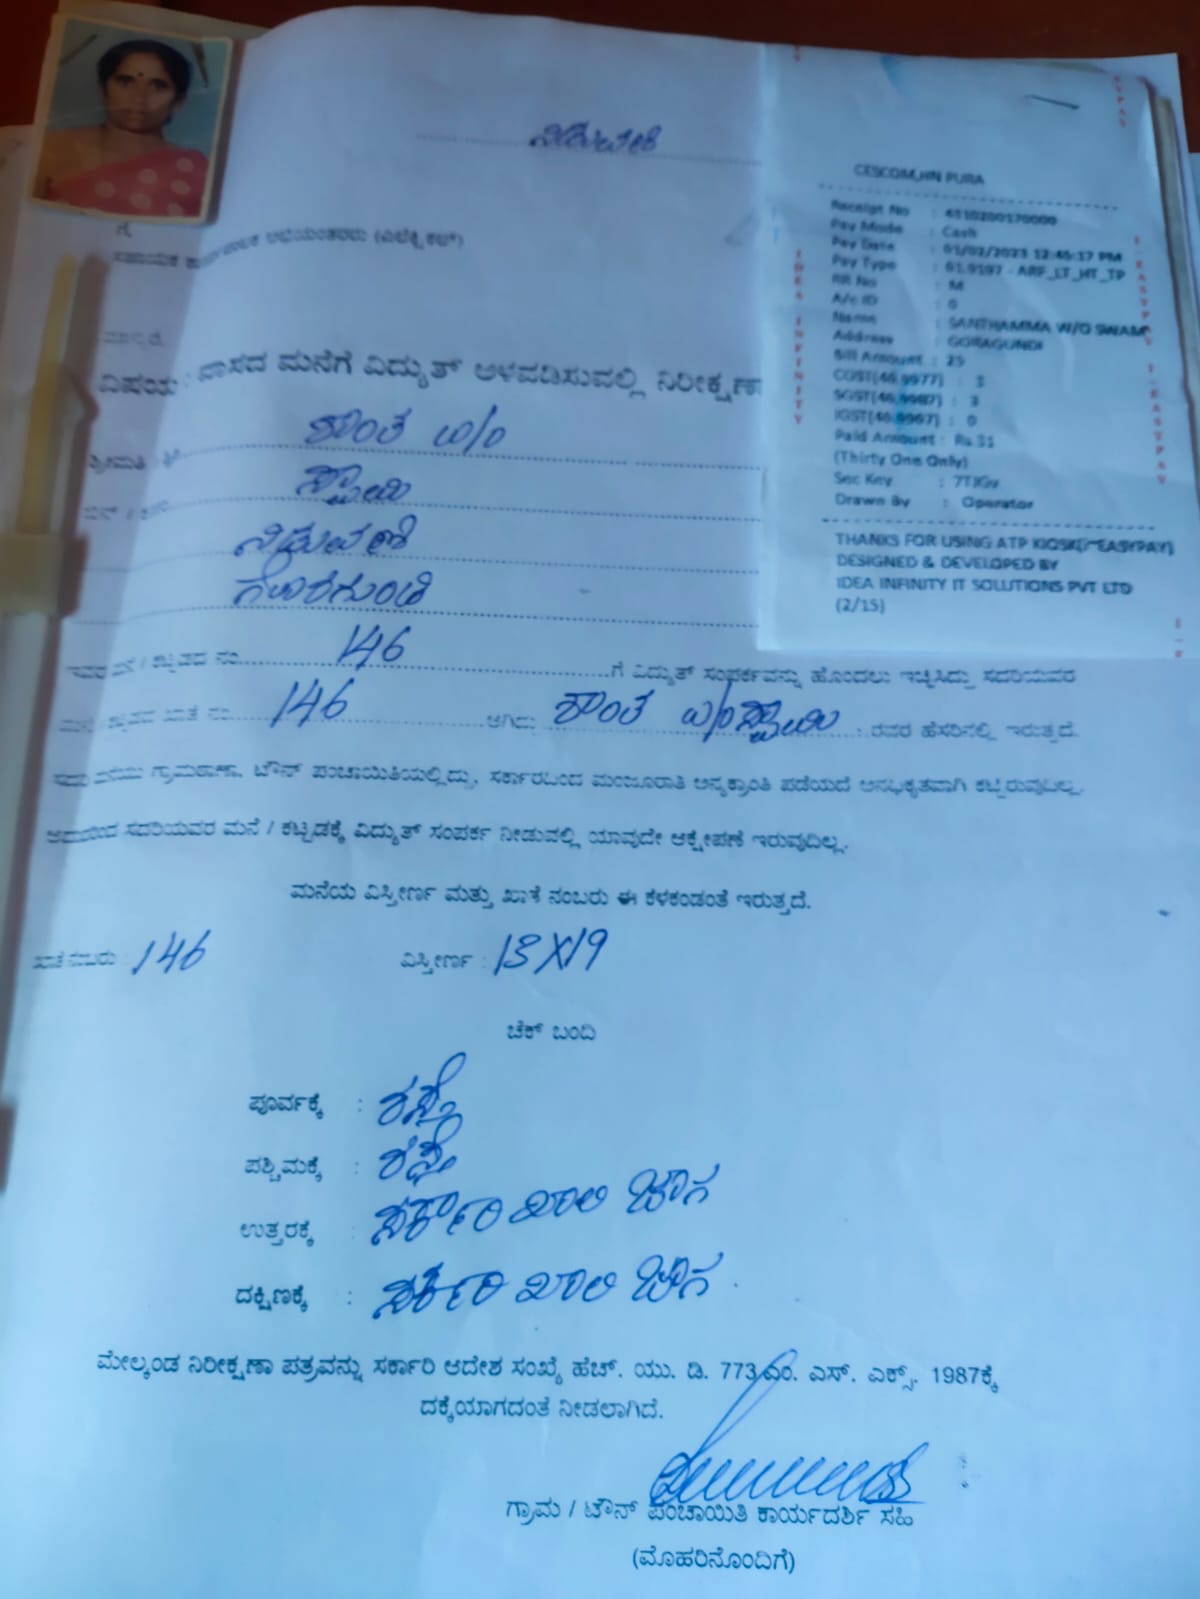 ನಿಡುವಣಿ
CESCOM,HN PURA
Receipt No : 4510200170000
Pay Mode : Cash
Pay Date : 01/02/2023 12:45:17 PM
Pay Type : 61.9197 - ARF_LT_HT_TP
RR No : M
A/c ID : 0
Name : SANTHAMMA W/O SWAM
Address : GORAGUNDI
Bill Amount : 25
CGST(46.9977) : 3
SGST(46.9987) : 3
IGST(46.9967) : 0
Paid Amount : Rs 31
(Thirty One Only)
Sec Key : 7TJGv
Drawn By : Operator
THANKS FOR USING ATP KIOSK(I-EASYPAY)
DESIGNED & DEVELOPED BY
IDEA INFINITY IT SOLUTIONS PVT LTD
(2/15)
ಗೆ
ಸಹಾಯಕ ಕಾರ್ಯಪಾಲಕ ಅಭಿಯಂತರರು (ಎಲೆಕ್ಟ್ರಿಕಲ್)
ಮಾನ್ಯರೆ,
ವಿಷಯ : ವಾಸದ ಮನೆಗೆ ವಿದ್ಯುತ್ ಅಳವಡಿಸುವಲ್ಲಿ ನಿರೀಕ್ಷಣಾ
ಶ್ರೀಮತಿ / ಶ್ರೀ ಶಾಂತ W/o
ಸ್ವಾಮಿ
ನಿಡುವಣಿ
ಗೊರಗುಂಡಿ
ಇವರ ಮನೆ / ಕಟ್ಟಡದ ನಂ. 146 ಗೆ ವಿದ್ಯುತ್ ಸಂಪರ್ಕವನ್ನು ಹೊಂದಲು ಇಚ್ಛಿಸಿದ್ದು ಸದರಿಯವರ
ಮನೆ / ಕಟ್ಟಡದ ಖಾತೆ ನಂ. 146 ಆಗಿದ್ದು ಶಾಂತ W/o ಸ್ವಾಮಿ ರವರ ಹೆಸರಿನಲ್ಲಿ ಇರುತ್ತದೆ.
ಸದರಿ ಮನೆಯು ಗ್ರಾಮಠಾಣಾ, ಟೌನ್ ಪಂಚಾಯಿತಿಯಲ್ಲಿದ್ದು, ಸರ್ಕಾರದಿಂದ ಮಂಜೂರಾತಿ ಅನ್ಯಕ್ರಾಂತಿ ಪಡೆಯದೆ ಅನಧಿಕೃತವಾಗಿ ಕಟ್ಟಿರುವುದಿಲ್ಲ.
ಆದುದರಿಂದ ಸದರಿಯವರ ಮನೆ / ಕಟ್ಟಡಕ್ಕೆ ವಿದ್ಯುತ್ ಸಂಪರ್ಕ ನೀಡುವಲ್ಲಿ ಯಾವುದೇ ಆಕ್ಷೇಪಣೆ ಇರುವುದಿಲ್ಲ.
ಮನೆಯ ವಿಸ್ತೀರ್ಣ ಮತ್ತು ಖಾತೆ ನಂಬರು ಈ ಕೆಳಕಂಡಂತೆ ಇರುತ್ತದೆ.
ಖಾತೆ ನಂಬರು : 146 ವಿಸ್ತೀರ್ಣ : 13X19
ಚೆಕ್ ಬಂದಿ
ಪೂರ್ವಕ್ಕೆ : ರಸ್ತೆ
ಪಶ್ಚಿಮಕ್ಕೆ : ರಸ್ತೆ
ಉತ್ತರಕ್ಕೆ : ಸರ್ಕಾರಿ ಖಾಲಿ ಜಾಗ
ದಕ್ಷಿಣಕ್ಕೆ : ಸರ್ಕಾರಿ ಖಾಲಿ ಜಾಗ
ಮೇಲ್ಕಂಡ ನಿರೀಕ್ಷಣಾ ಪತ್ರವನ್ನು ಸರ್ಕಾರಿ ಆದೇಶ ಸಂಖ್ಯೆ ಹೆಚ್. ಯು. ಡಿ. 773 ಎಂ. ಎಸ್. ಎಕ್ಸ್. 1987ಕ್ಕೆ
ದಕ್ಕೆಯಾಗದಂತೆ ನೀಡಲಾಗಿದೆ.
ಗ್ರಾಮ / ಟೌನ್ ಪಂಚಾಯಿತಿ ಕಾರ್ಯದರ್ಶಿ ಸಹಿ
(ಮೊಹರಿನೊಂದಿಗೆ)